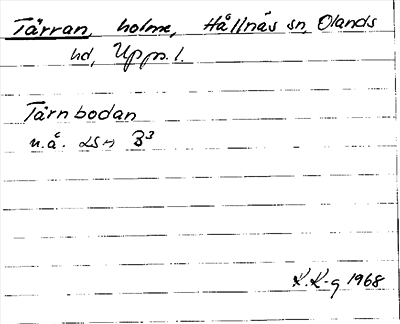 Tärran, holme, Hållnäs sn, Olands
hd, Upps. l.
Tärnbodan
n.å. LSA B3
K. K-g 1968